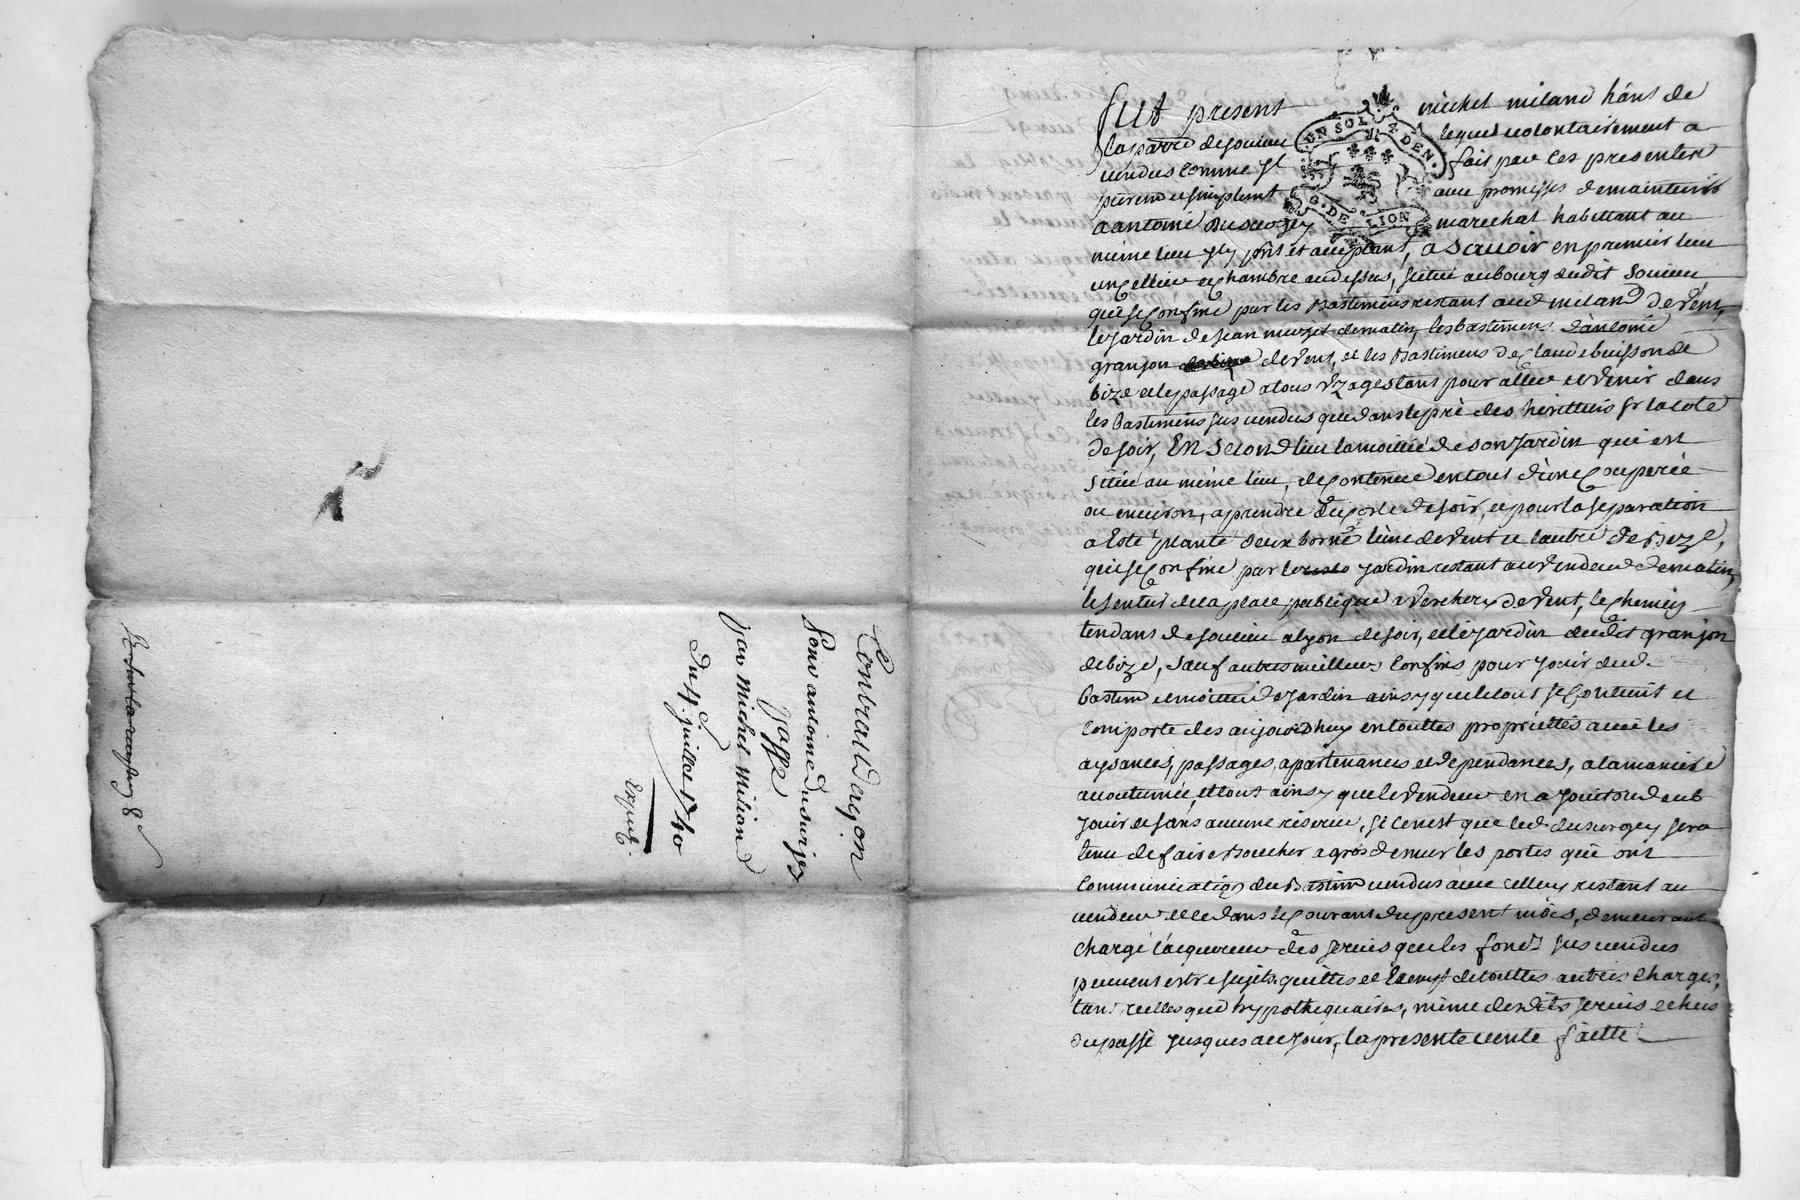 fut present michel miland hânt de
la parre de soucieu lequel volontairement a
vendus comme jl fait par ces presentes
purem et simplemt avec promesses de maintenir
a antoine dusurgey marechal habittant au
même lieu jcy pnt et acceptant, a scavoir en premier lieu
un cellier et chambre au dessus, scitué au bourg dudit soucieu,
qui se confine par les bastimens restant aud milan de vent,
le jardin de jean de matin, les bastimens d'antoine
granjon de vent, et les bastimens de claude buisson de
bize et le passage a tous vzages tant pour aller et venir dans
les bastimens sus vendus que dans le pré des herittiers
de soir, En second lieu la moitié de son jardin qui est
scitué au même lieu, de contenue en tout d'une couperée
ou environ, a prendre du coté de soir, et pour la separation
a été planté deux borne l'une de vent et l'autre de bize,
qui se confine par le jardin restant au vendeur de matin,
le sentier de la place publique de vent, le chemin
tendant de soucieu a lyon de soir, et le jardin dudit granjon
de bize, sauf autres meilleurs confins pour jouir dud
bastim et moitié de jardin ainsy que le tout se contient et
comporte des aujourdhuy en touttes proprietés avec les
aysances, passages, apartenances et dependances, a la maniere
accoutumée, et tout ainsy que le vendeur en a jouit ou deub
jouir et sans aucune reserve, si ce n'est que led. dusurgey sera
tenu de faire boucher a gros de mur les portes qui ont
communication du bastim vendus avec celluy restant au
vendeur et ce dans le courant du present mois, demeurant
chargé l'acquereur des servis que les fonds sus vendus
peuvent estre sujets quittes et exempt de touttes autres charges,
tant reelles que hypothequaires, même desdits servis echus
du passé jusques a ce jour, la presente vente faitte
Contrat d'acq.on
Pour antoine Dusurgey
passé
par michel miliand
Du 4e juillet 1740
Expedié.